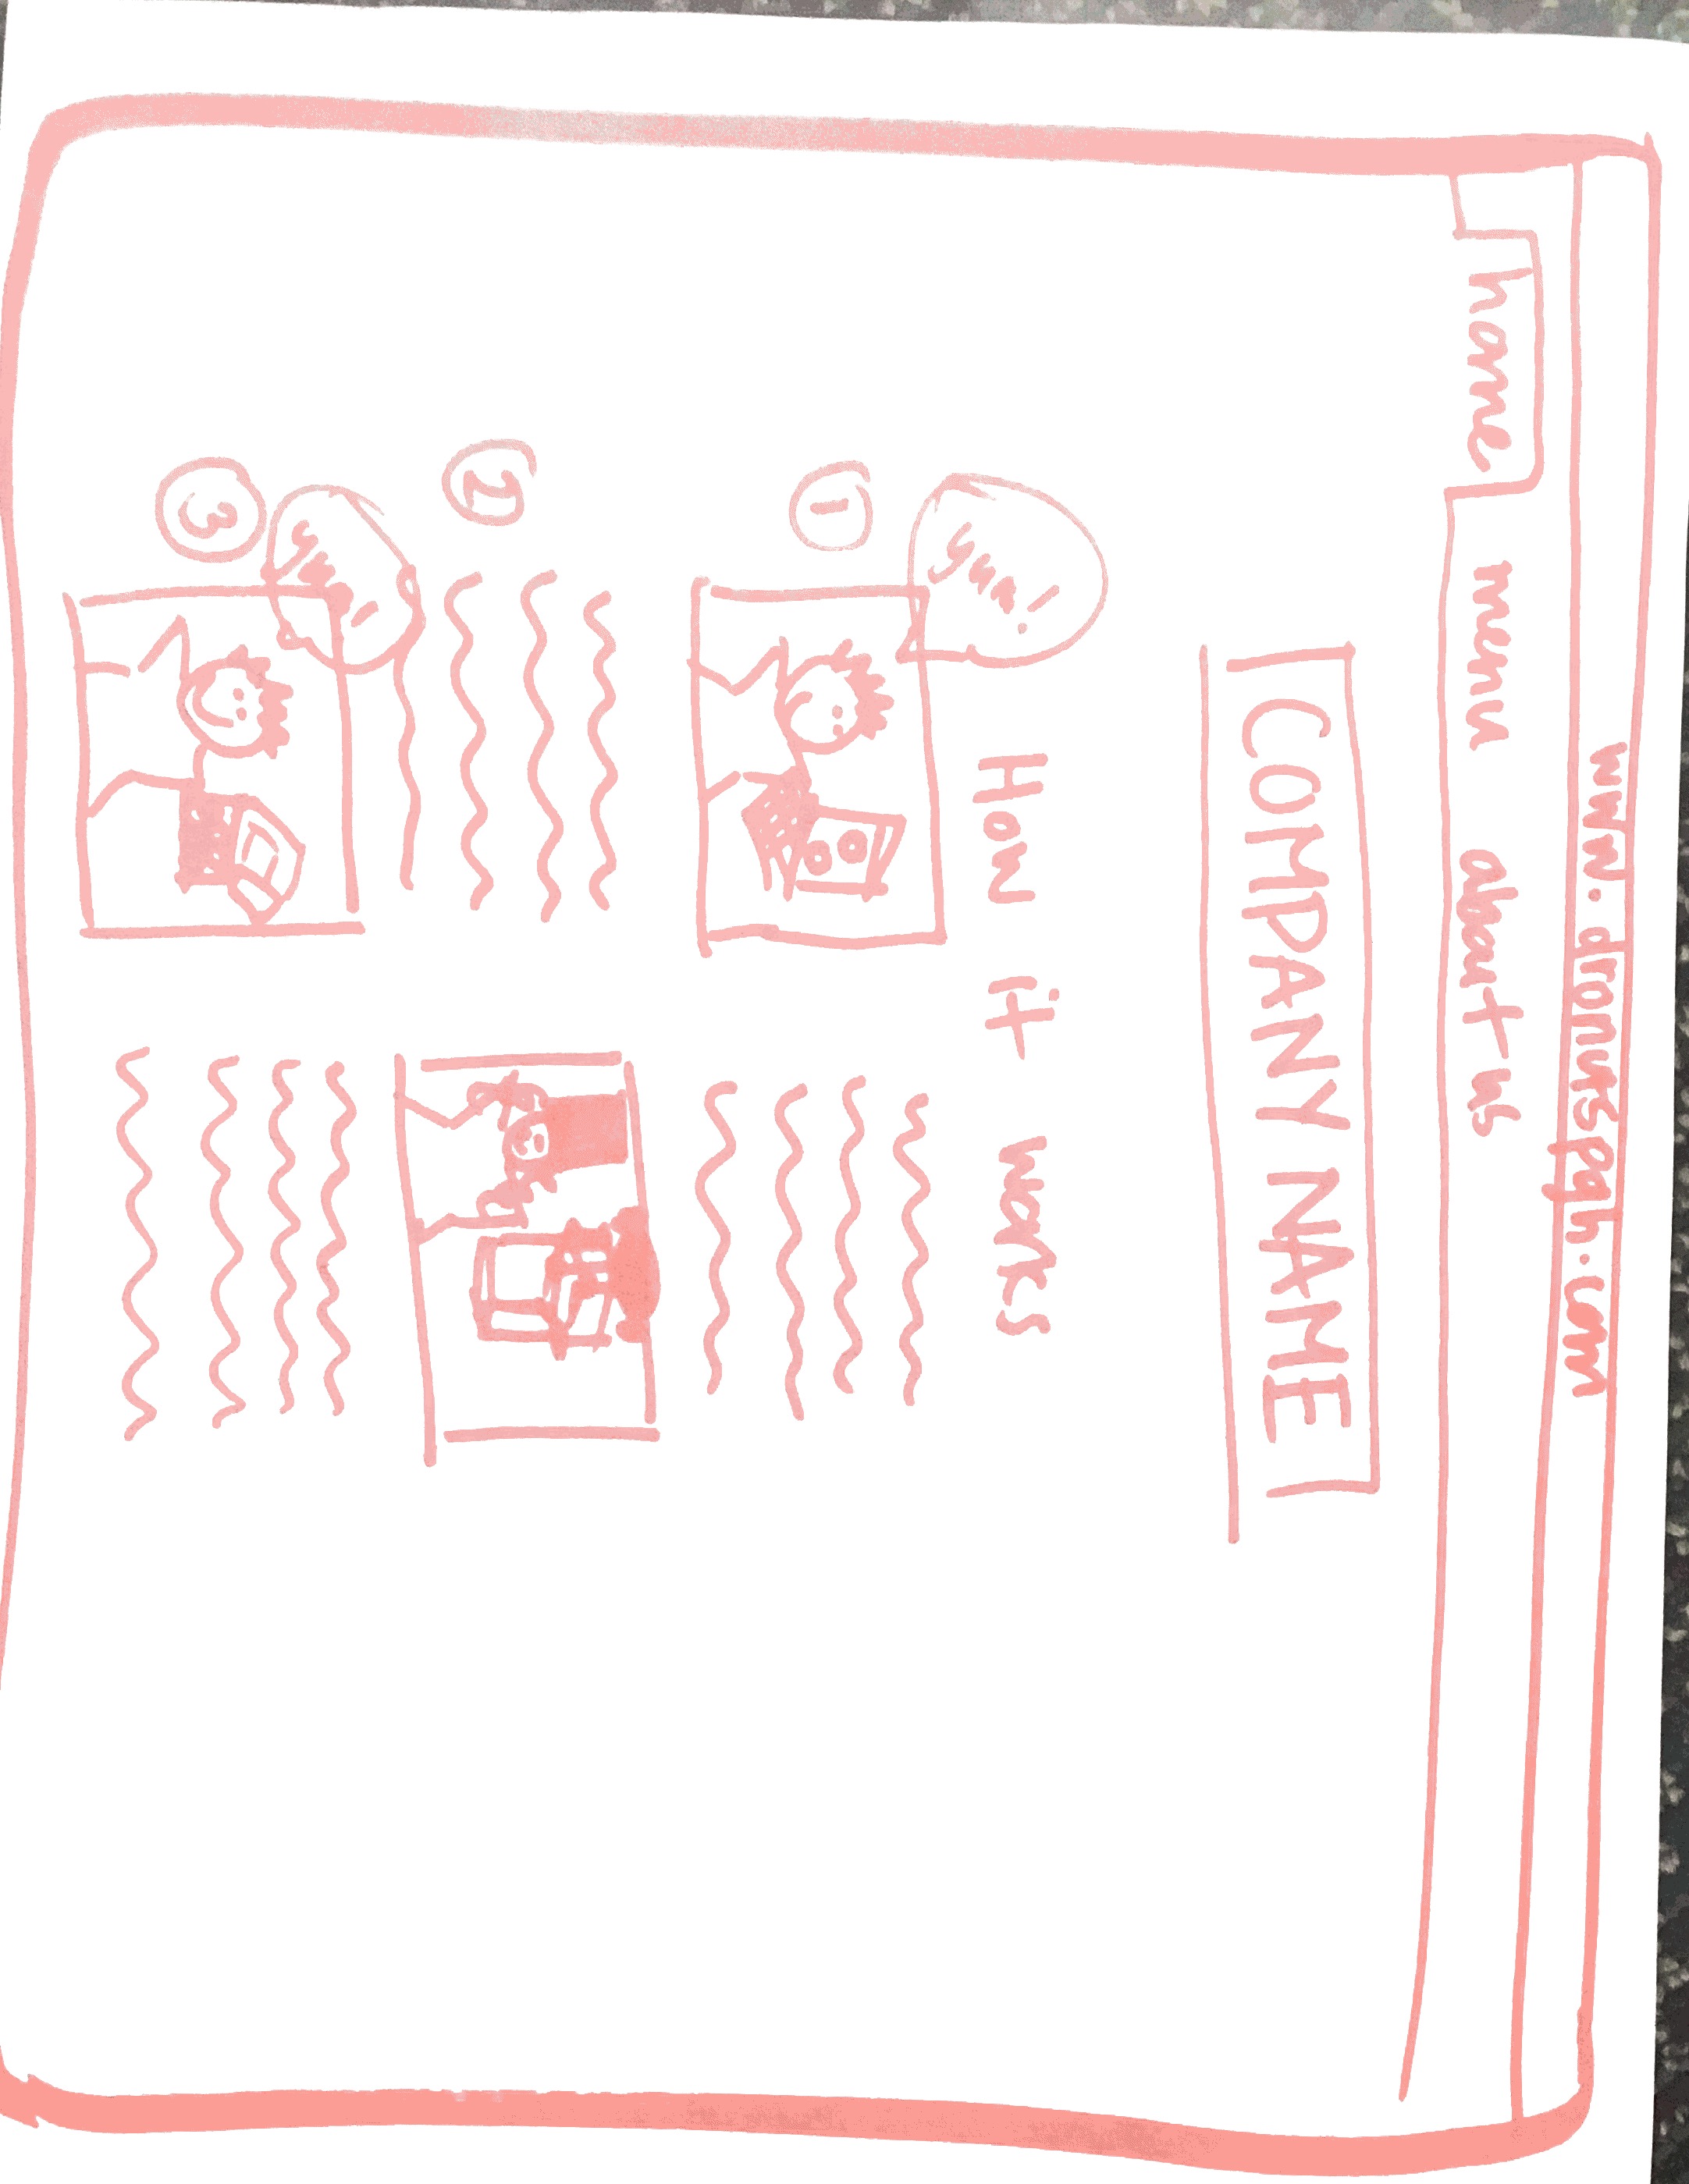 www.dronutspgh.com
home menu about us
COMPANY NAME
How it works
yum!
1
2
yum!
3